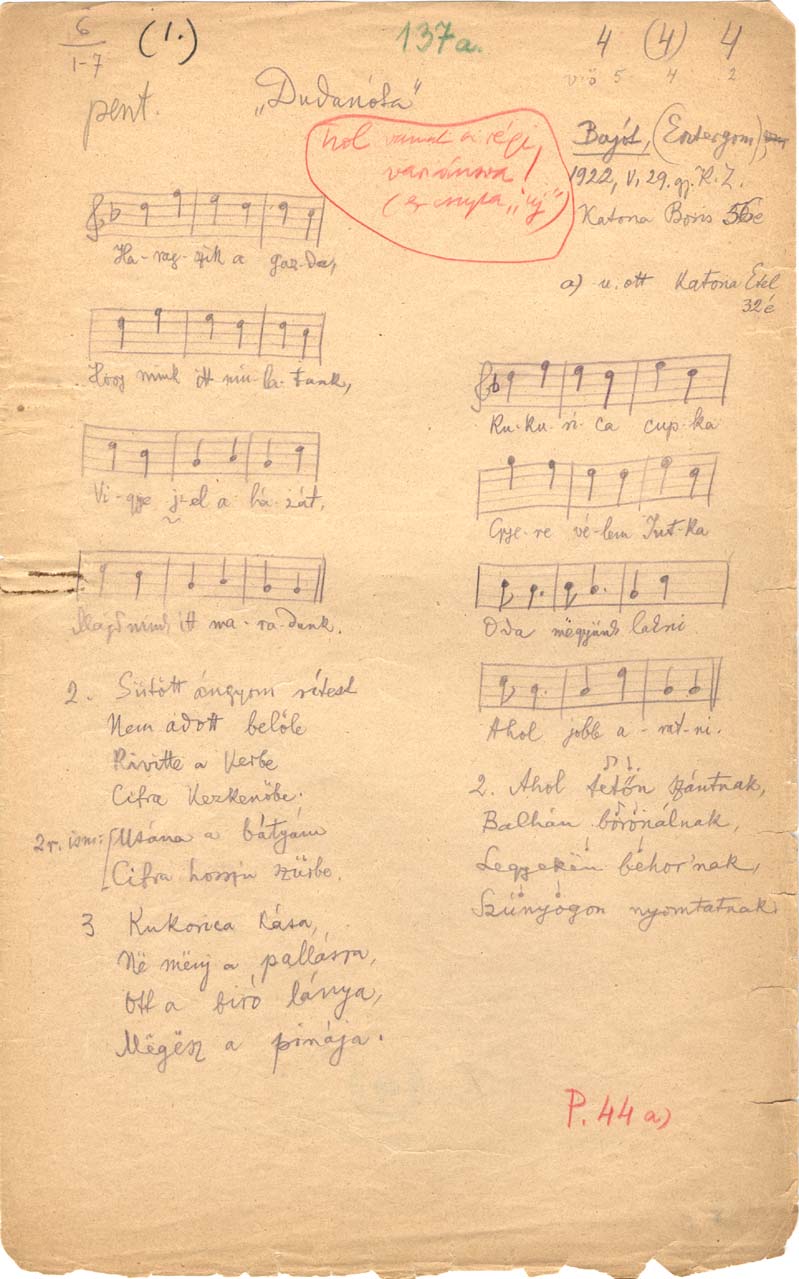 6
1-7
(1.)
137a.
4 (4) 4
5 4 2
pent.
„Dudanóta"
hol vannak a régi
variánsra!
„új")
Bajót, (Esztergom),
1922, V. 29. gy. K. Z.
Katona Boris 56é
a) u. ott Katona Etel
32é
Ha-rag-szik a gaz-da,
Hogy mink itt mu-la-tunk,
Vi-gye j-el a há-zát,
Majd mink itt ma-ra-dunk.
2. Sütött ángyom rétest
Nem adott belőle
Kivitte a kerbe
Cifra kezkenőbe.
2r. ism: Utána a bátyám
Cifra hosszu szűrbe.
3 Kukorica kása,
Në mënj a pallásra,
Ott a biró lánya,
Mëgësz a pinája.
Ku-ku-ri-ca cup-ka
Gye-re vé-lem Jut-ka
Oda mëgyünk lakni
Ahol jobb a-rat-ni.
2. Ahol tetőn szántnak,
Balhán boronálnak,
Legyekën behor'nak,
Szúnyogon nyomtatnak.
P. 44 a)